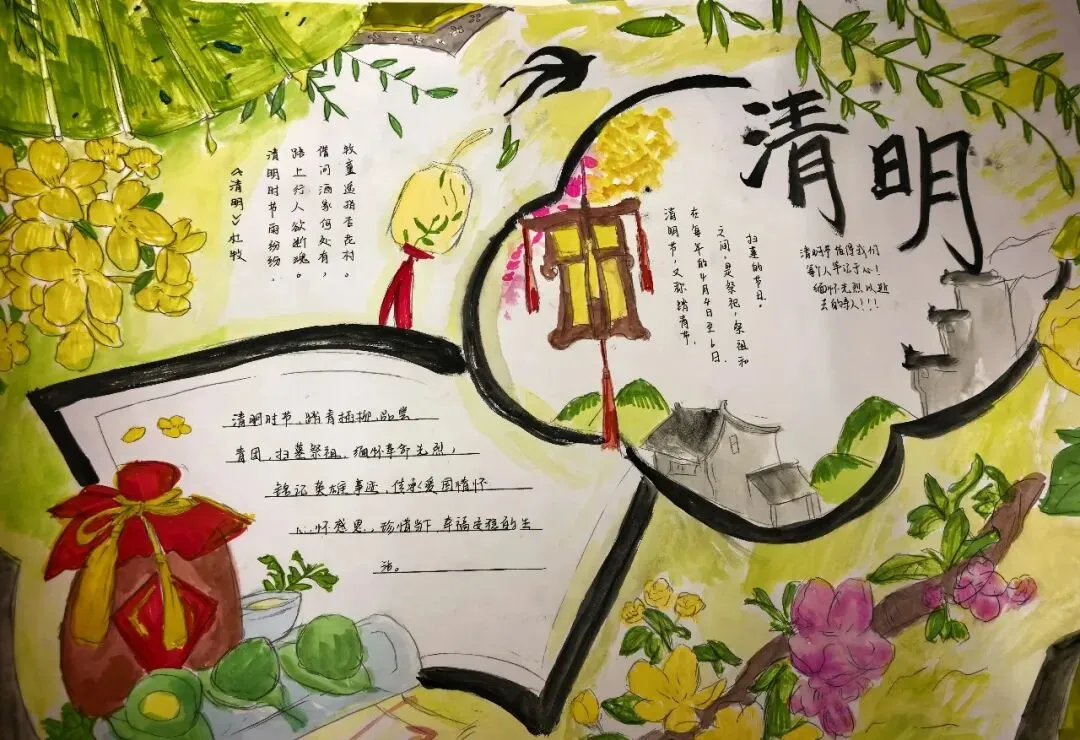 清明
《清明》杜牧
清明时节雨纷纷.
路上行人欲断魂.
借问酒家何处有,
牧童遥指杏花村。
清明节,又称踏青节,
在每年的4月4日至6日.
之间,是祭祀,祭祖和
扫墓的节日。
清明节值得我们
每个人牢记于心!
缅怀先烈以逝
去的亲人!!!
清明时节,踏青插柳,品尝
青团,扫墓祭祖,缅怀革命先烈,
铭记英雄事迹,传承爱国情怀
心怀感恩,珍惜当下幸福安稳的生
活。